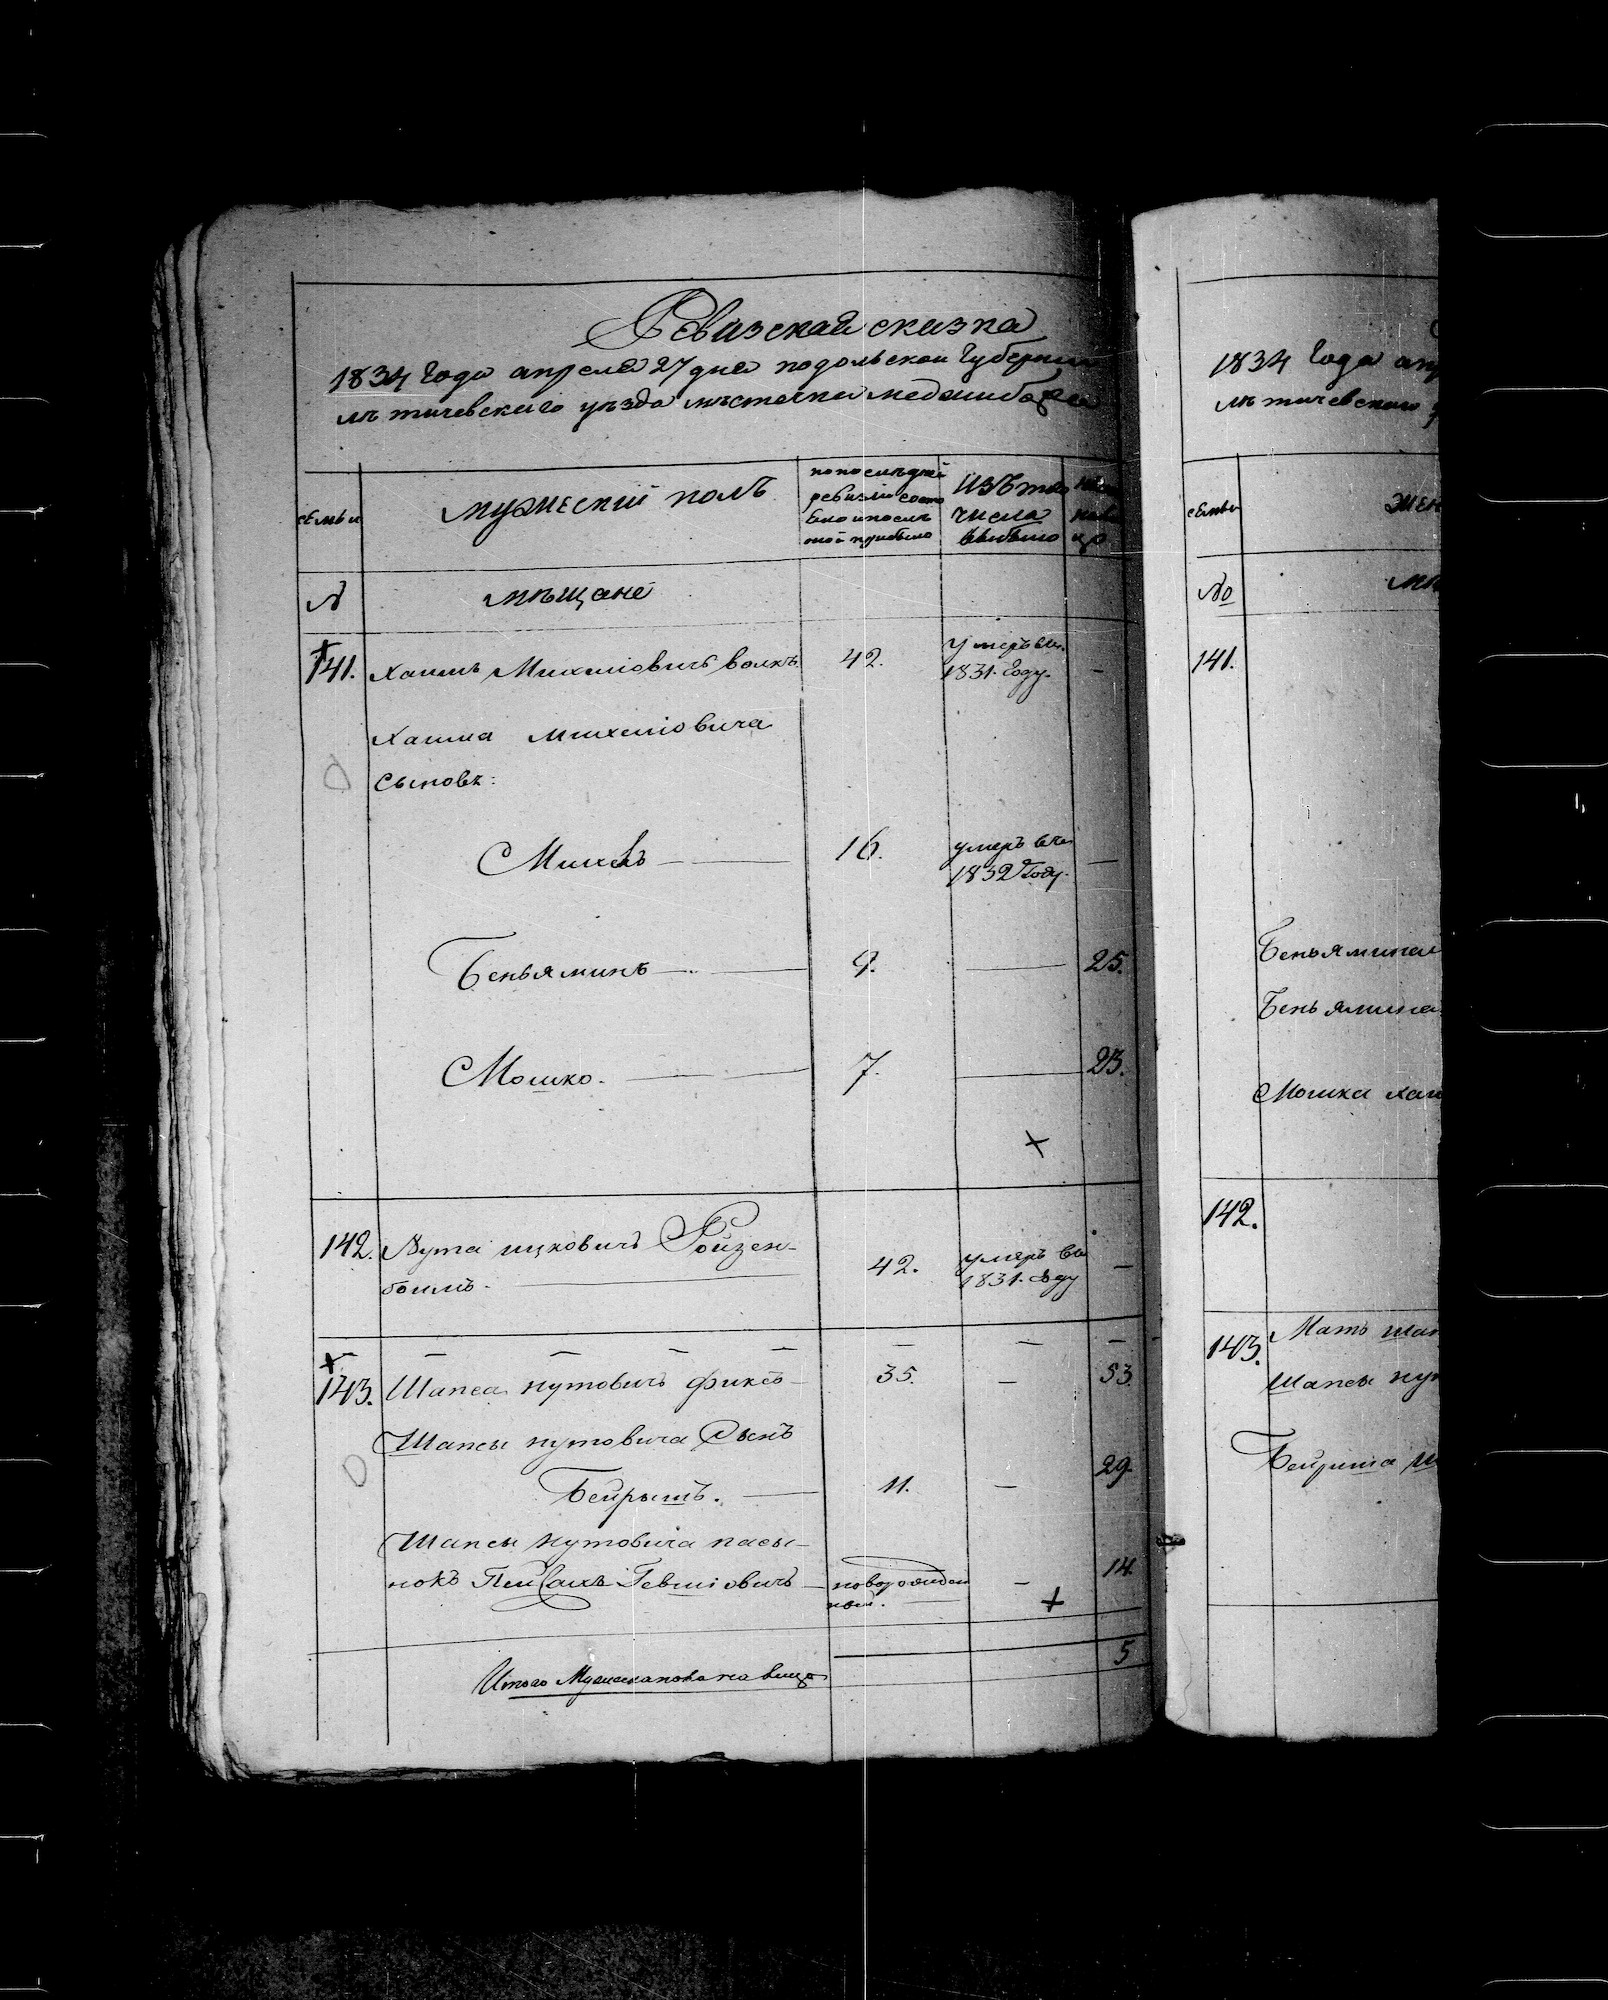 Ревизская сказка
1834 Года апреля 27 дня подольской Губернии
лѣтичевскаго уѣзда мѣстечка меджибожа
семьи
мужеский полъ
по последней
ревизии состо
яло и после
той прибыло
изъ того
числа
выбыло
№
мѣщане
141. Хаимъ Михелiовичъ волкъ
42.
умеръ въ
1831. Году.
Хаима михелiовича
сыновъ:
Михель
16.
умеръ въ
1832 Году.
Беньяминъ
9.
25.
Мошко.
7.
23.
142. Нута ицковичъ Ройзен-
боимъ.
42.
умеръ въ
1831. Году
143. Шапса нутовичъ фиксъ
35.
53.
Шапсы нутовича Сынъ
Бейрышъ.
11.
29.
Шапсы нутовича пасы-
нокъ Пейсахъ Гевшiовичъ
новорожден
ный.
14.
Итого Мужеска пола на лицо
5
1834 Года апр
лѣтичевскаго
семьи
жен
№
мѣ
141.
Беньямина
Беньямина
Мошка хаи
142.
143. Мать шап
Шапсы нут
Бейриша ш